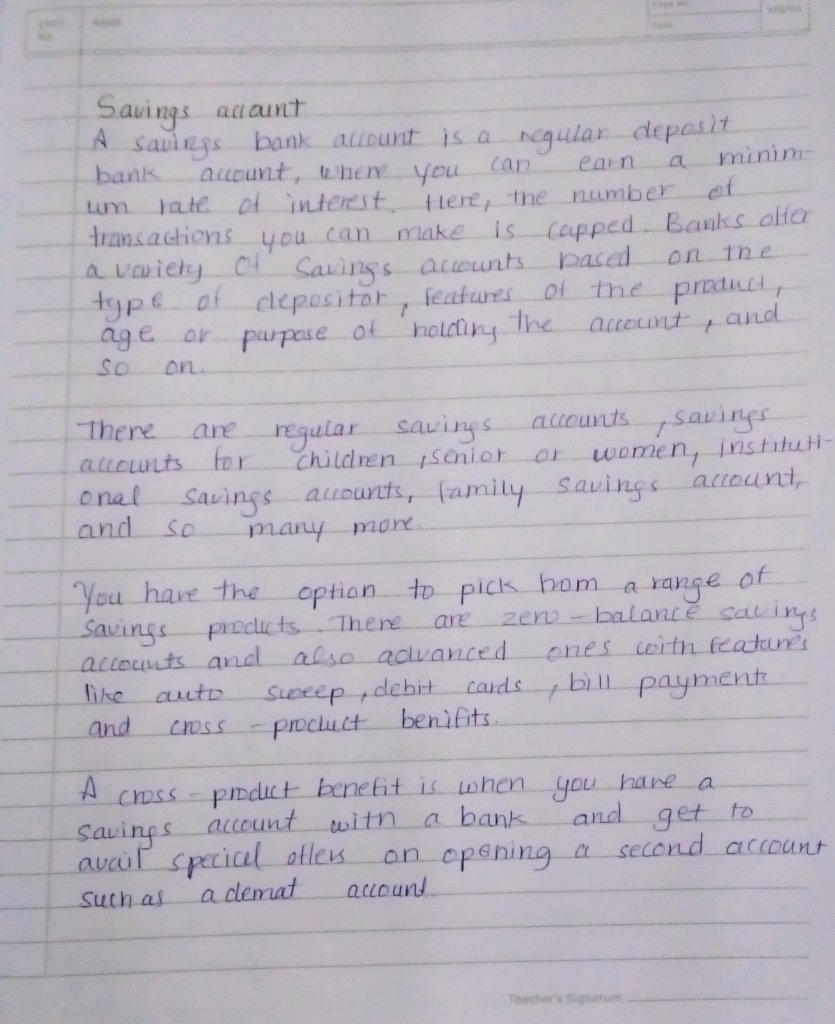 EXPT. NO.
NAME
Page No.
Date
YOUVA
Savings account
A savings bank account is a regular deposit
bank account, where you can earn a minim-
um rate of interest. Here, the number of
transactions you can make is capped. Banks offer
a variety Of Savings accounts based on the
type of depositor, features of the product,
age or purpose of holding the account, and
so on.
There are regular savings accounts, savings
accounts for children, senior or women, instituti-
onal savings accounts, family savings account,
and so many more.
You have the option to pick from a range of
Savings products. There are zero - balance savings
accounts and also advanced ones with features
like auto sweep, debit cards, bill payments
and cross - product benifits.
A cross - product benefit is when you have a
Savings account with a bank and get to
avail special offers on opening a second account
such as a demat account.
Teacher's Signature